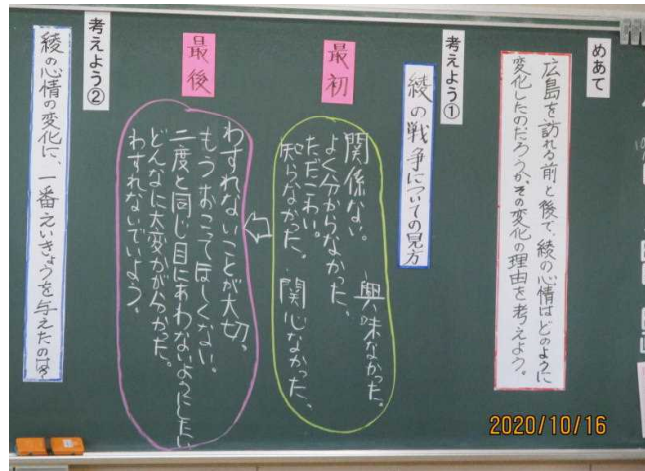 めあて
広島を訪れる前と後で、綾の心情はどのように
変化したのだろうか。その変化の理由を考えよう。
考えよう①
綾の戦争についての見方
最初
関係ない。 興味なかった。
よく分からなかった、
ただこわい。
知らなかった。 関心なかった、
最後
わすれないことが大切。
もうおこってほしくない。
二度と同じ目にあわないようにしたい
どんなに大変かが分かった。
わすれないでいよう。
考えよう②
綾の心情の変化に、一番えいきょうを与えたのは?
2020/10/16